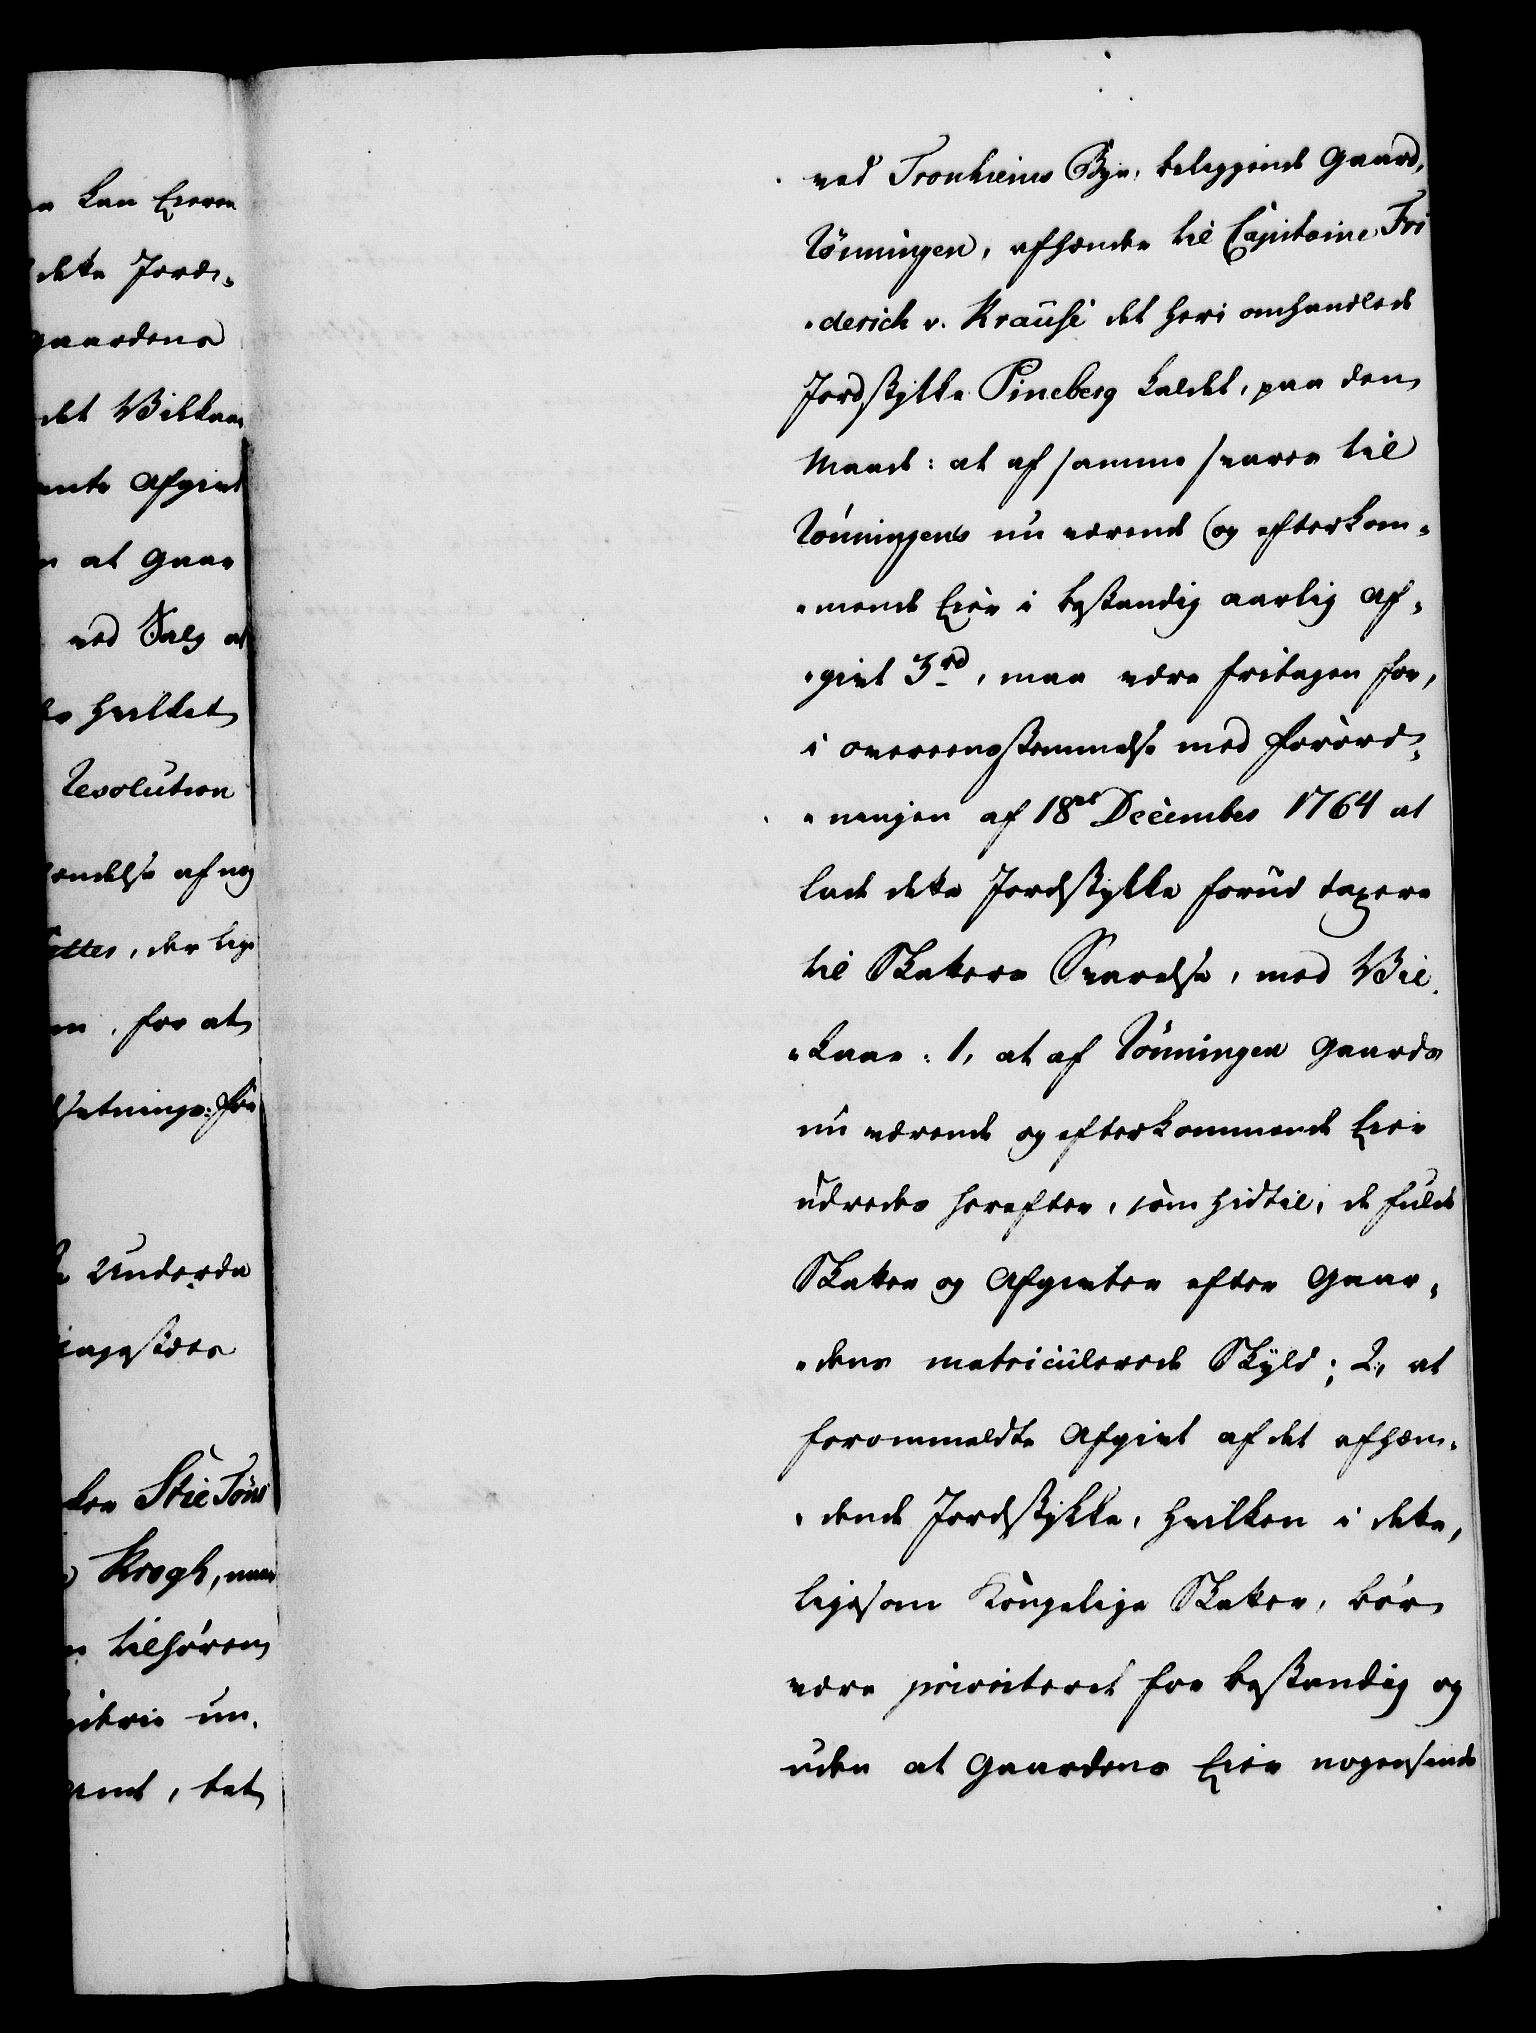 n kan Eieren
dette Jord-
gaardens
det Vilkaar
ente Afgivt
n at Gaar
ved Salg af
hvilket
Resolution
endelse af nog
ttes, der lige
for at
sætnings: For
Underda
Stie Töns
Krogh, maa
tilhören
un-
ved Tronhiems Bye, beliggende Gaard,
Rönningen, afhænde til Capitaine Fri
-derich v. Krausè det heri omhandlede
Jordstykke Pineberg kaldet, paa den
Maade: at af samme svares til
Rönningens nu værende og efterkom-
-mende Eier i bestandig aarlig Af-
-givt 3 rd, maa være fritagen for,
i overeensstemmelse med Forord-
-ningen af 18de December 1764 at
lade dette Jordstykke forud taxere
til Skatters Svarelse, med Vil-
-kaar: 1, at af Rönningen Gaards
nu værende og efterkommende Eier
udredes herefter, som hidtil, de fulde
Skatter og Afgivter efter Gaar-
-dens matriculerede Skyld; 2, at
forommeldte Afgivt af det afhæn-
-dende Jordstykke, hvilken i dette,
ligesom Kongelige Skatter, bör
være prioriteret for bestandig og
uden at Gaardens Eier nogensinde